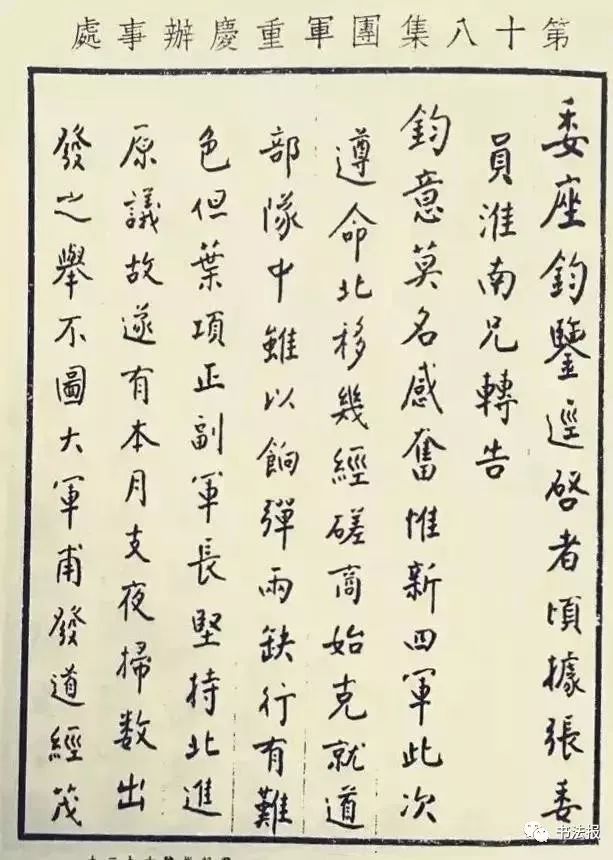 第十八集團軍重慶辦事處
委座鈞鑒逕啓者頃據張委
員淮南兄轉告
鈞意莫名感奮惟新四軍此次
遵命北移幾經磋商始克就道
部隊中雖以餉彈兩缺行有難
色但葉項正副軍長堅持北進
原議故遂有本月支夜掃数出
發之舉不圖大軍甫發道經茂
书法报